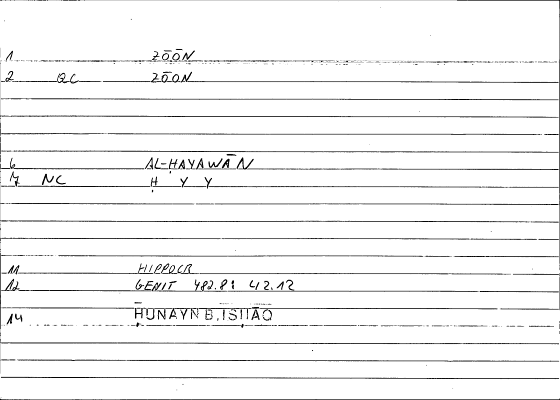 1 ZŌŌN
2 QC ZŌŌN
6 AL-ḤAYAWĀN
7 NC Ḥ Y Y
11 HIPPOCR
12 GENIT 482.8: 42.12
14 ḤUNAYN B. ISḤĀQ